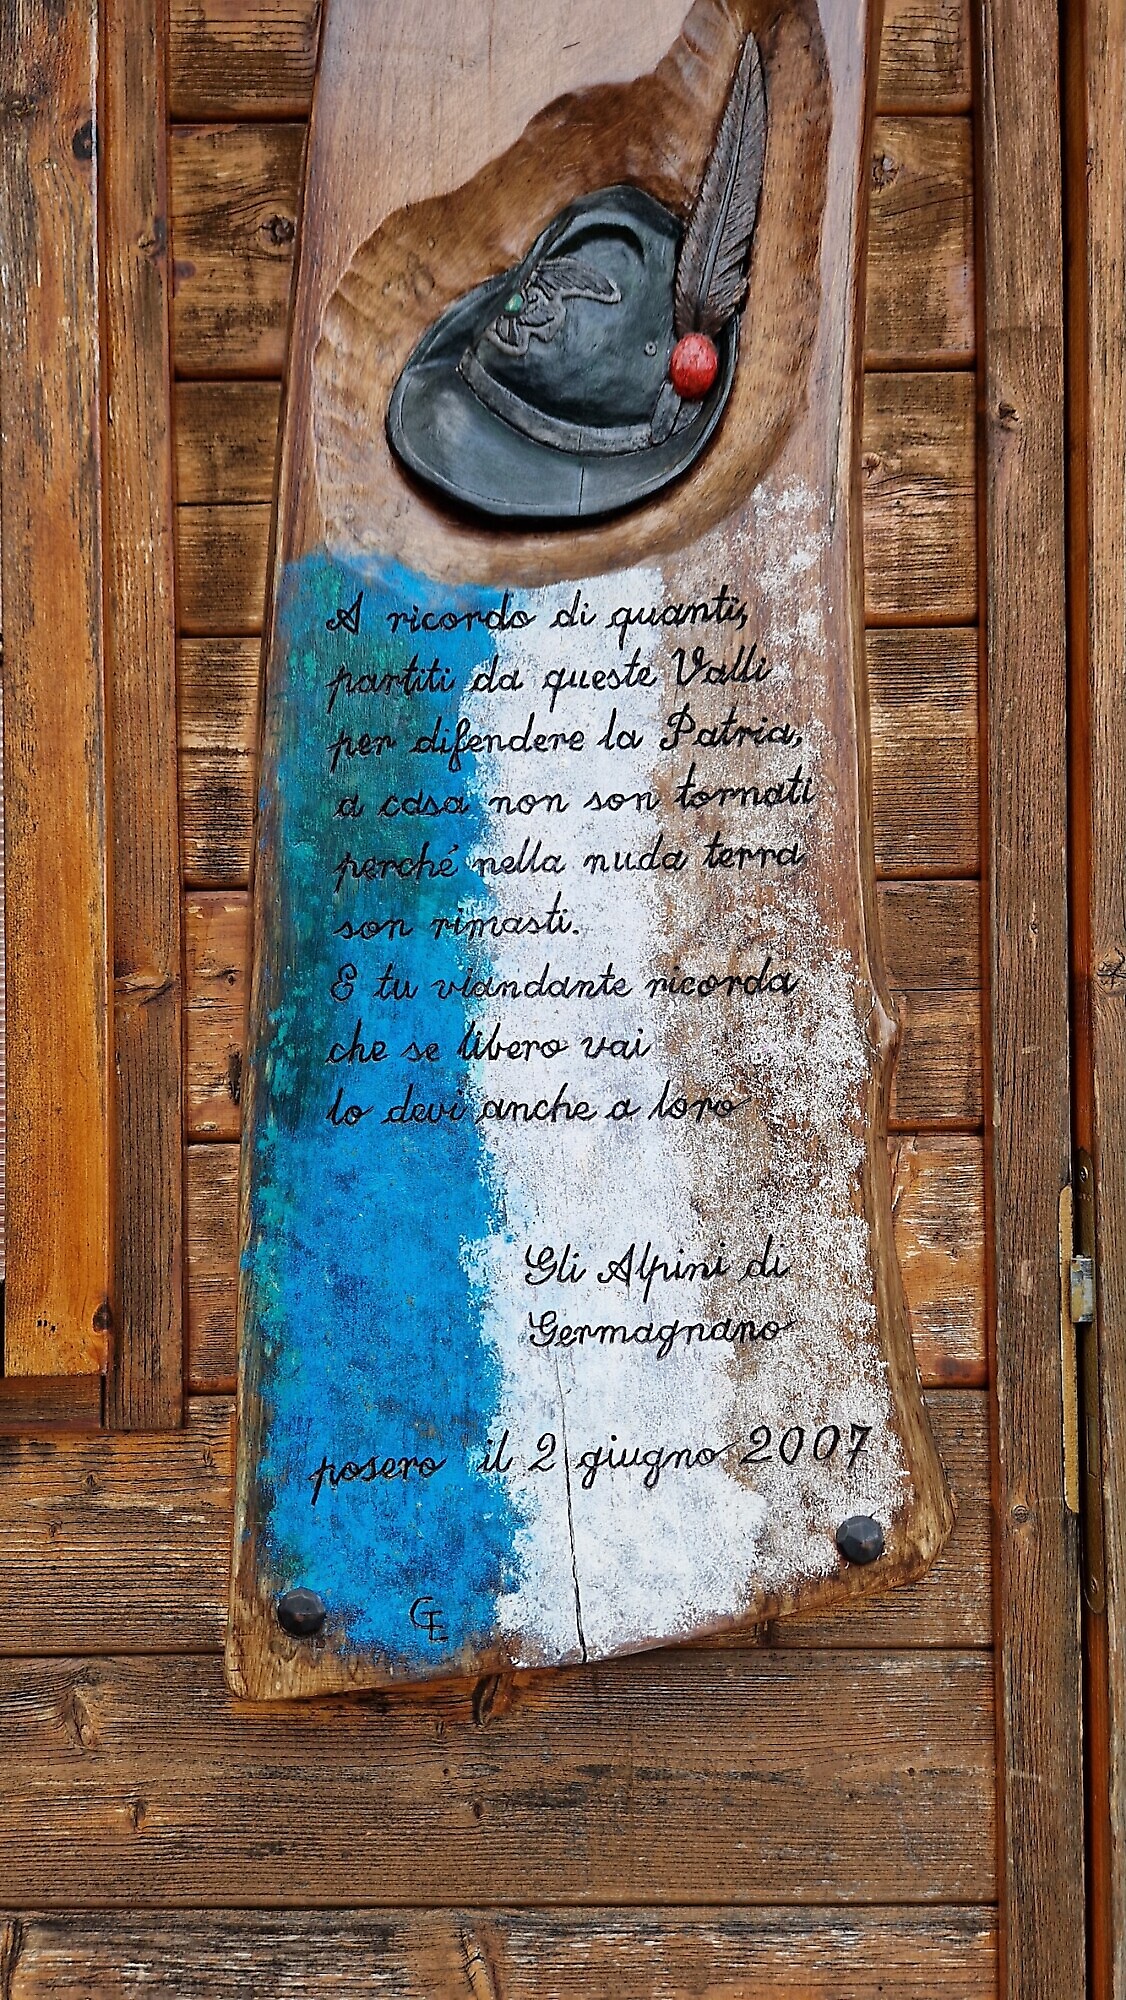 A ricordo di quanti,
partiti da queste Valli
per difendere la Patria,
a casa non son tornati
perché nella nuda terra
son rimasti.
E tu viandante ricorda
che se libero vai
lo devi anche a loro
Gli Alpini di
Germagnano
posero il 2 giugno 2007